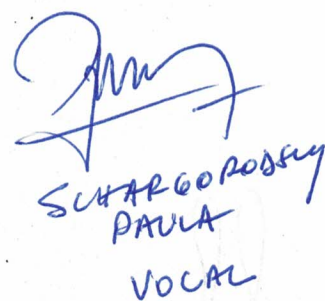 SCHARGORODSKY
PAULA
VOCAL